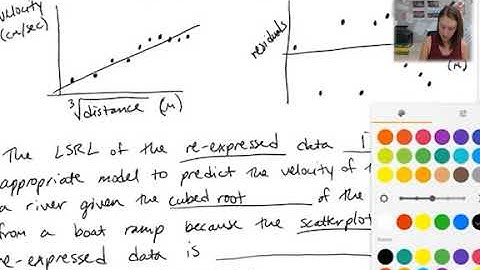 velocity
(cm/sec)
residuals
(m)
³√distance (m)
The LSRL of the re-expressed data
appropriate model to predict the velocity of
a river given the cubed root of the
from a boat ramp because the scatterplot
re-expressed data is